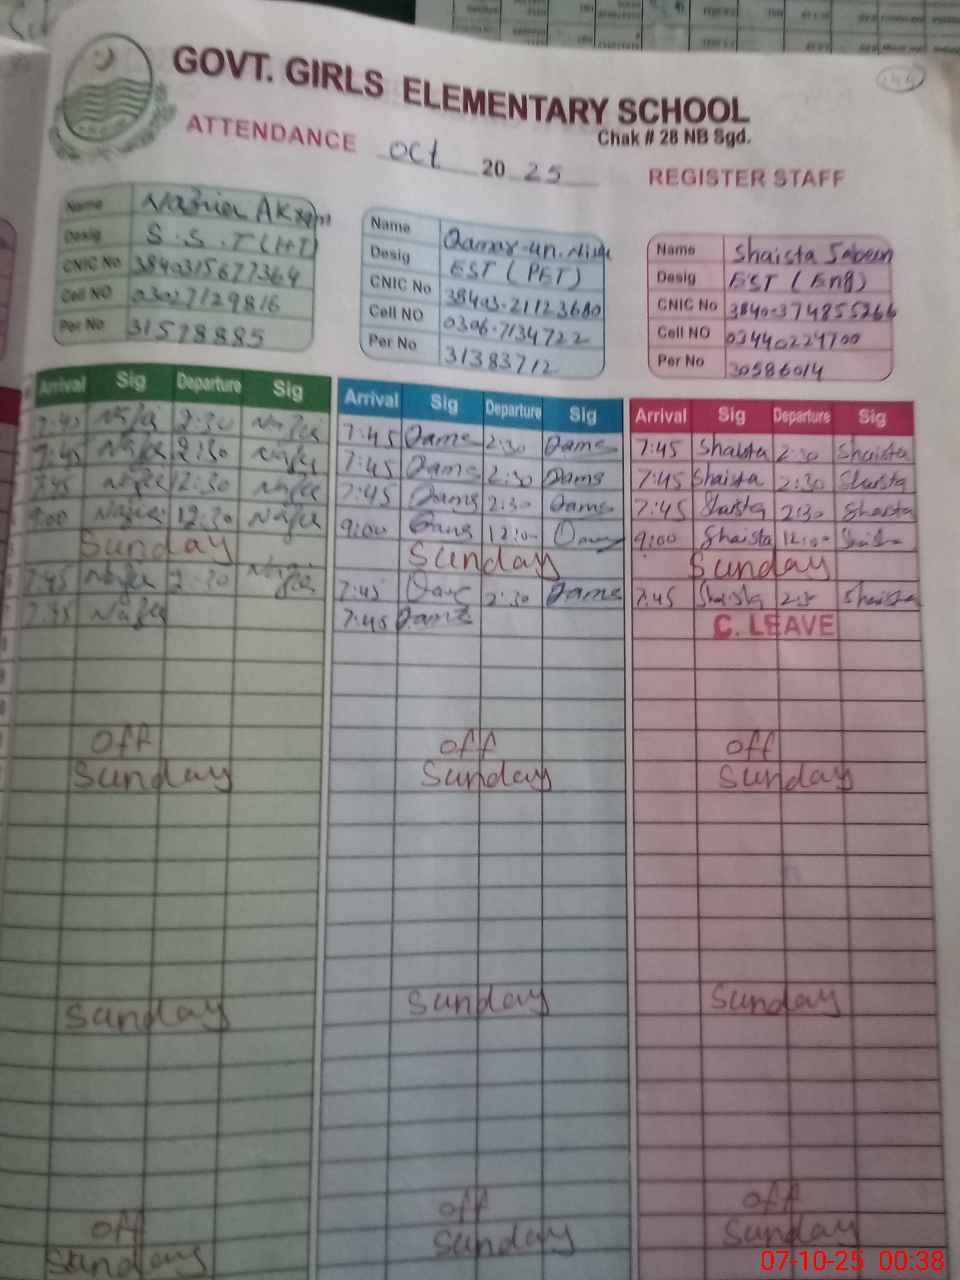 GOVT. GIRLS ELEMENTARY SCHOOL
Chak # 28 NB Sgd.
ATTENDANCE Oct 20 25 REGISTER STAFF
Name Nazia Akram
Desig S.S.T (HT)
CNIC No 3840315677364
Cell NO 03027129816
Per No 31578885
Name Qamar-un-Nisa
Desig EST (PET)
CNIC No 38403-21123680
Cell NO 0306-7134722
Per No 31383712
Name Shaista Jabeen
Desig EST (Eng)
CNIC No 3840374855266
Cell NO 03440224700
Per No 30586014
Arrival Sig Departure Sig
7:45 2:30
7:45 2:30
7:45 2:30
9:00 12:30
Sunday
7:45 2:30
7:45
off
Sunday
Sunday
off
Sunday
Arrival Sig Departure Sig
7:45 2:30
7:45 2:30
7:45 2:30
9:00 12:00
Sunday
7:45 2:30
7:45
off
Sunday
Sunday
off
Sunday
Arrival Sig Departure Sig
7:45 Shaista 2:30 Shaista
7:45 Shaista 2:30 Shaista
7:45 Shaista 2:30 Shaista
9:00 Shaista 12:00 Shaista
Sunday
7:45 Shaista Shaista
C. LEAVE
off
Sunday
Sunday
off
Sunday
07-10-25 00:38